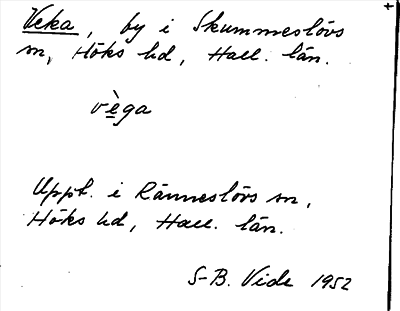 Veka, by i Skummeslövs
sn, Höks hd, Hall. län.
vèga
Uppt. i Ränneslövs sn,
Höks hd, Hall. län.
S-B. Vide 1952